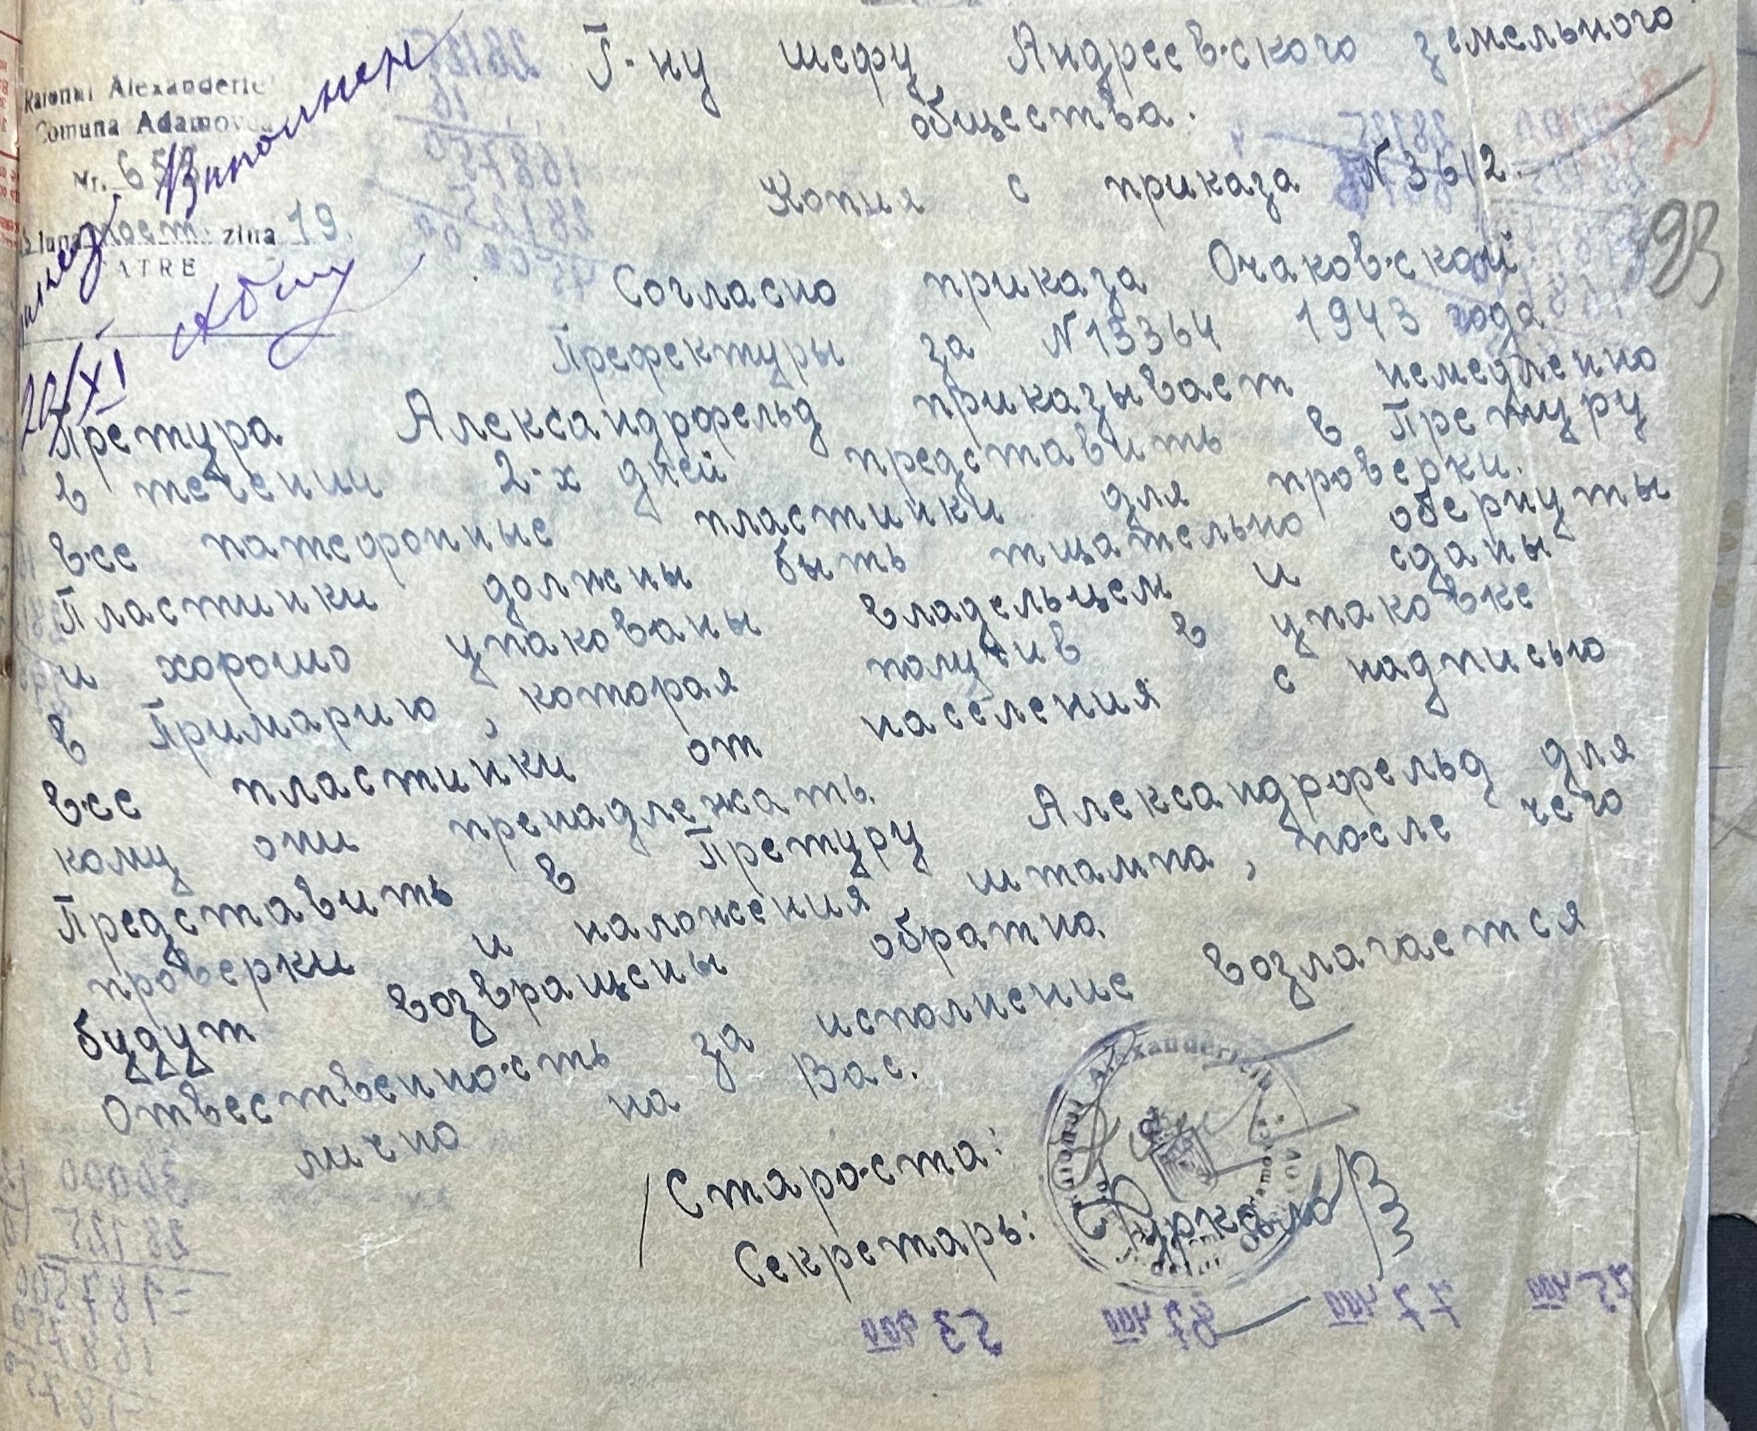 Raionul Alexanderfe
Comuna Adamov
Nr. 65
luna ноет. ziua 19.
ATRE
Виполнен
20/XI
Г-ну шефу Андреевского земельного
общества.
Копия с приказа №3612.
93
Согласно приказа Очаковской
Префектуры за №13364 1943 года
Претура Александрфельд приказывает немедленно
в течении 2-х дней представить в Претуру
все патефонные пластинки для проверки.
Пластинки должны быть тщательно обернуты
и хорошо упакованы владельцем и сданы
в Примарию, которая получив в упаковке
все пластинки от населения с надписью
кому они пренадлежать.
Представить в Претуру Александрфельд для
проверки и наложения штампа, после чего
будут возвращены обратно.
Отвественность за исполнение возлагается
лично на Вас.
Староста:
Секретарь:
30000
28125
=187500
53 400
87 400
77 400
75 400